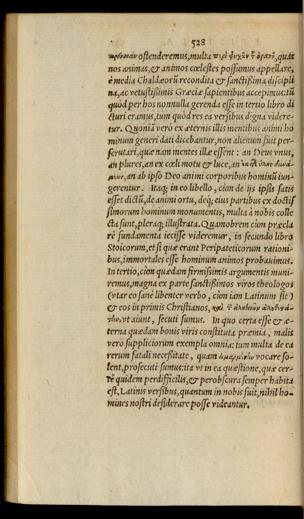 528
ostenderemus, multa περὶ ψυχῶν quas
nos animas, & animos cœlestes possumus appellare,
è media Chaldæorũ recondita & sanctißima discipli
na, ac vetustißimis Græciæ sapientibus accepimus: tũ
quòd per hos nonnulla gerenda esse in tertio libro di
cturi eramus, tum quòd res ea versibus digna videre-
tur. Quoniã verò ex æternis illis mentibus animi ho
minum generi dati dicebantur, non alienum fuit per-
scrutari, quæ nam mentes illæ essent: an Deus vnus,
an plures, an ex cœli motu & luce, an
an ab ipso Deo animi corporibus hominũ iun-
gerentur. Itaq; in eo libello, cùm de ijs ipsis satis
esset dictũ, de animi ortu, deq; eius partibus ex doctis
simorum hominum monumentis, multa à nobis colle
cta sunt, pleraq; illustrata. Quamobrem cùm præcla
rè fundamenta iecisse videremur, in secundo libro
Stoicorum, et si quæ erant Peripateticorum rationi-
bus, immortales esse hominum animos probauimus.
In tertio, cùm quædam firmißimis argumentis muni
remus, magna ex parte sanctißimos viros theologos
(vtar eo sanè libenter verbo, cùm iam Latinum sit)
& eos in primis Christianos,
vt aiunt, secuti sumus. In quo certa esse & æ-
terna quædam bonis viris constituta præmia, malis
verò suppliciorum exempla omnia: tum multa de ea
rerum fatali neceßitate, quam εἱμαρμένην vocare so-
lent, prosecuti sumus: ita vt in ea quæstione, quæ cer-
tè quidem perdifficilis, & perobscura semper habita
est, Latinis versibus, quantum in nobis fuit, nihil ho-
mines nostri desiderare posse videantur.